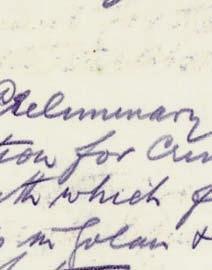 Preliminary
tion for Crim
th which f
s in Golan &